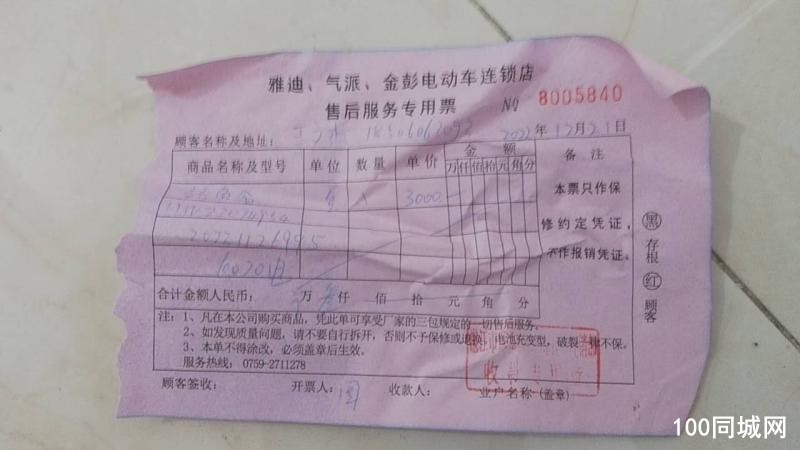 雅迪、气派、金彭电动车连锁店
售后服务专用票 № 8005840
顾客名称及地址: 2022年12月21日
商品名称及型号 单位 数量 单价 金额 备注
万 仟 佰 拾 元 角 分
3000 本票只作保
修约定凭证,
不作报销凭证。
6020电
合计金额人民币: 万 仟 佰 拾 元 角 分
注: 1、凡在本公司购买商品, 凭此单可享受厂家的三包规定的一切售后服务。
2、如发现质量问题, 请不要自行拆开, 否则不予保修或退换, 电池充变型, 破裂一律不保。
3、本单不得涂改, 必须盖章后生效。
服务热线: 0759-2711278
顾客签收: 开票人: 周 收款人: 业户名称 (盖章)
黑 存根 红 顾客
100同城网